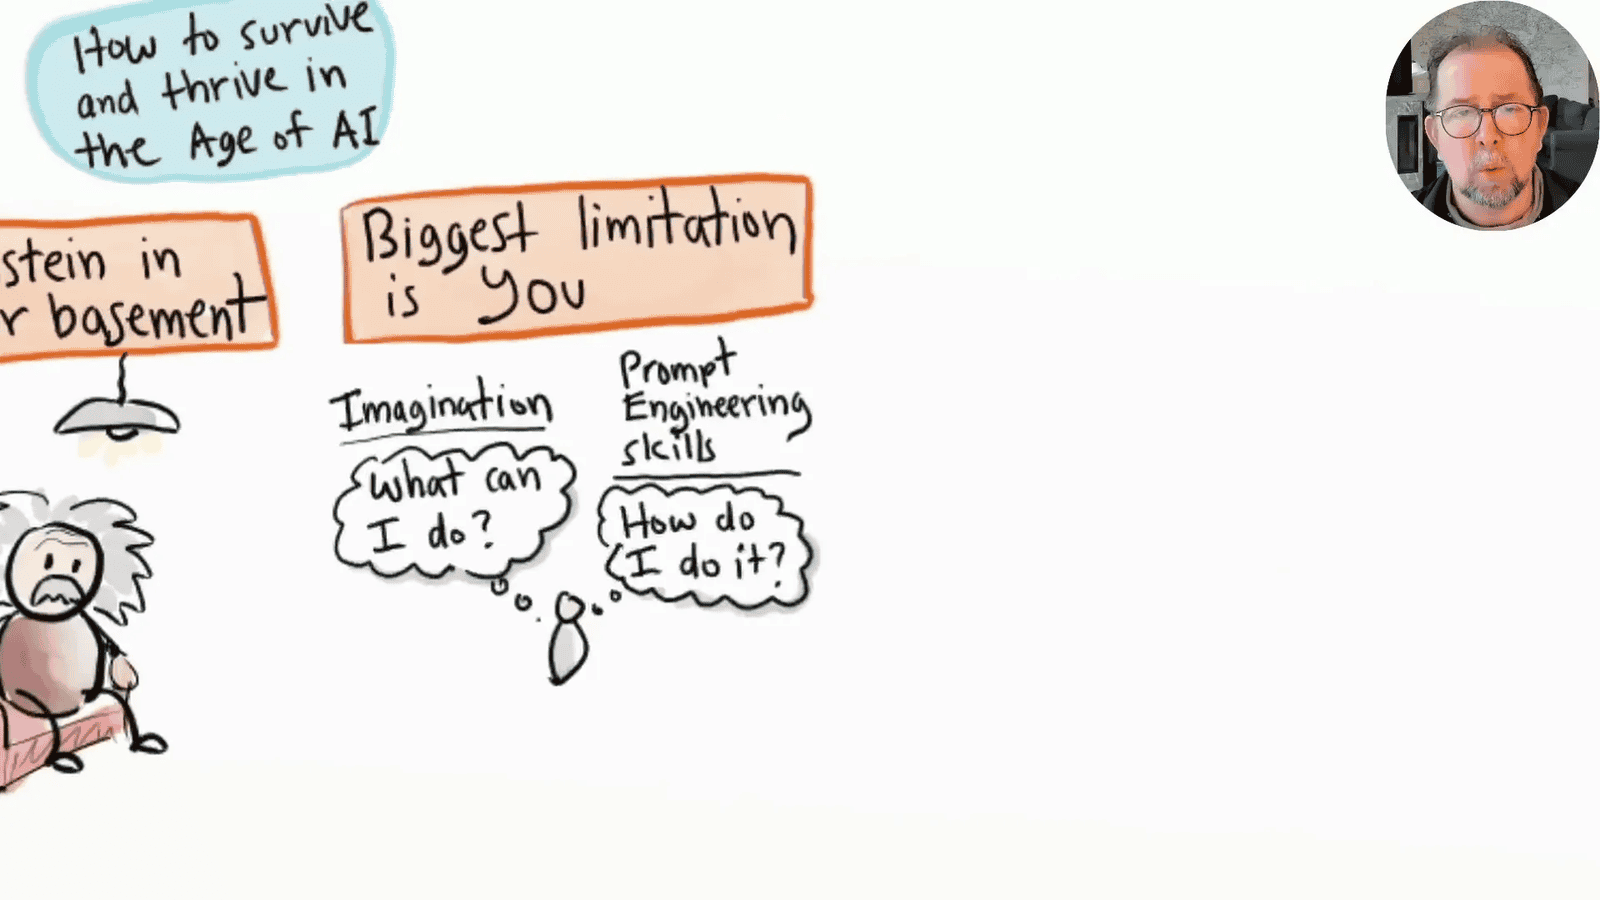 How to survive
and thrive in
the Age of AI
stein in
r basement
Biggest limitation
is You
Imagination
What can
I do?
Prompt
Engineering
skills
How do
I do it?